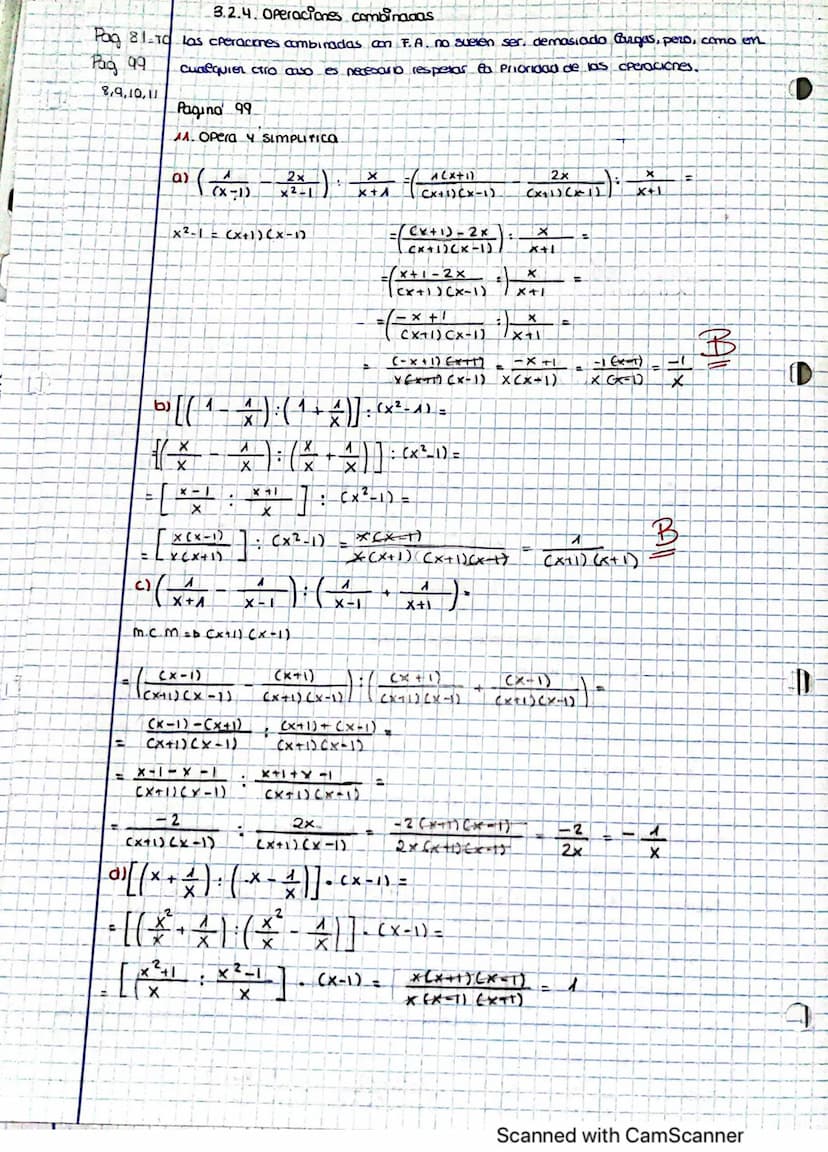 3.2.4. Operaciones combinadas
Pag 81-TO Las operaciones combinadas con F.A. no suelen ser demasiado largas, pero, como en
Pag 99 cualequier otro caso es necesario respetar la Prioridad de las operaciones.
8,9,10,11
Pagina 99
11. Opera y simplifica
a) (1/(x-1) - 2x/(x²-1)) : x/(x+1) = (1(x+1)/((x+1)(x-1)) - 2x/((x+1)(x-1))) : x/(x+1) =
x²-1 = (x+1)(x-1) = (((x+1)-2x)/((x+1)(x-1))) : x/(x+1) =
= ((x+1-2x)/((x+1)(x-1)) :) x/(x+1) =
= ((-x+1)/((x+1)(x-1)) :) x/(x+1) =
= ((-x+1)(x+1))/(x(x+1)(x-1)) = (-x+1)/(x(x-1)) = (-1(x-1))/(x(x-1)) = -1/x B
b) [(1 - 1/x) : (1 + 1/x)] : (x²-1) =
[(x/x - 1/x) : (x/x + 1/x)] : (x²-1) =
= [(x-1)/x : (x+1)/x] : (x²-1) =
= [x(x-1)/(x(x+1))] : (x²-1) = x(x-1)/(x(x+1)(x+1)(x-1)) = 1/((x+1)(x+1)) B
c) (1/(x+1) - 1/(x-1)) : (1/(x-1) + 1/(x+1)) =
m.c.m => (x+1)(x-1)
= ((x-1)/((x+1)(x-1)) - (x+1)/((x+1)(x-1))) : ((x+1)/((x+1)(x-1)) + (x-1)/((x+1)(x-1))) =
= ((x-1)-(x+1))/((x+1)(x-1)) : ((x+1)+(x-1))/((x+1)(x-1)) =
= (x-1-x-1)/((x+1)(x-1)) : (x+1+x-1)/((x+1)(x-1)) =
= -2/((x+1)(x-1)) : 2x/((x+1)(x-1)) = -2(x+1)(x-1)/(2x(x+1)(x-1)) = -2/2x = - 1/x
d) [(x + 1/x) : (x - 1/x)] · (x-1) =
= [(x²/x + 1/x) : (x²/x - 1/x)] · (x-1) =
= [(x²+1)/x : (x²-1)/x] · (x-1) = x(x+1)(x-1)/(x(x-1)(x+1)) = 1
Scanned with CamScanner